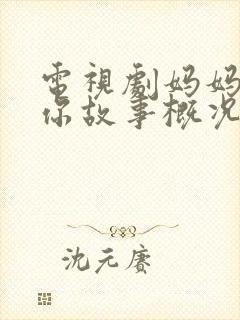 電視劇妈妈
你故事概况
沈元赛